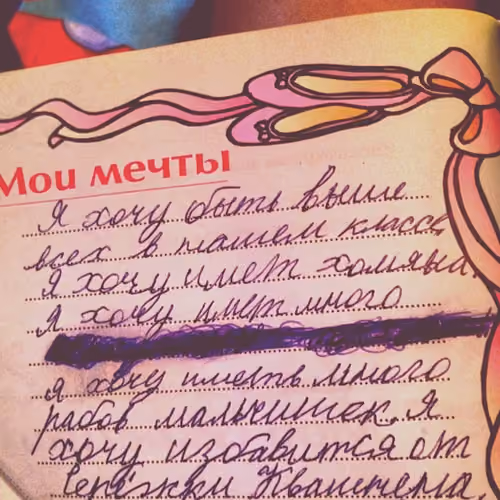 Мои мечты
Я хочу быть выше
всех в нашем классе
Я хочу имет хомяка.
Я хочу имет много
я хочу иметь много
рабов мальчишок. Я
хочу избавится от
Серёжки